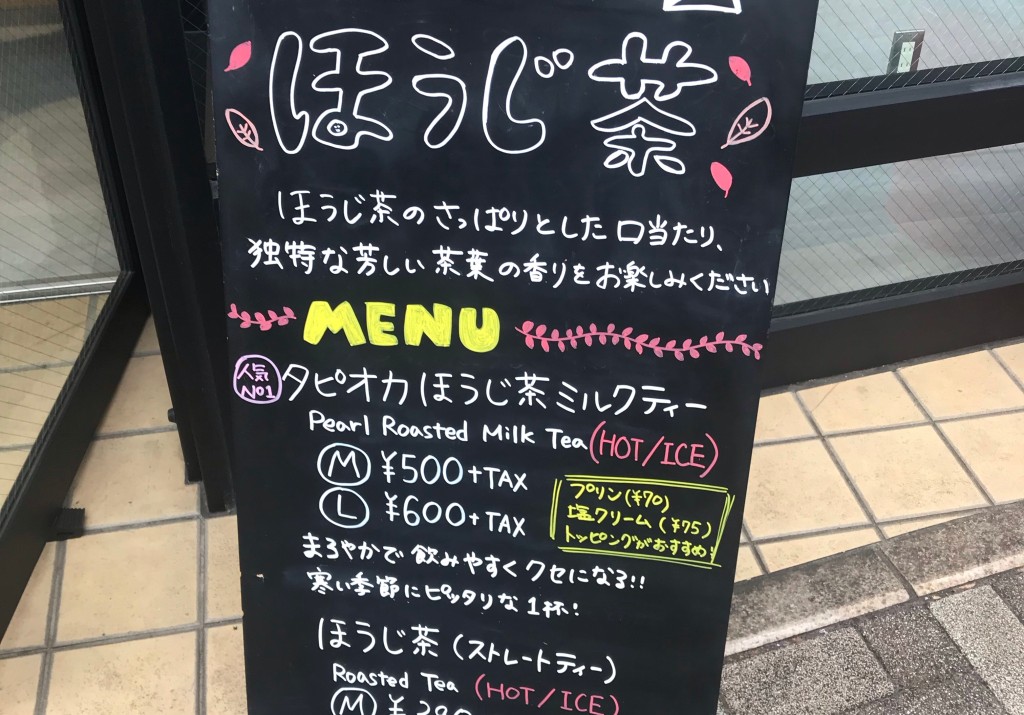 ほうじ茶
ほうじ茶のさっぱりとした口当たり、
独特な芳しい茶葉の香りをお楽しみください
MENU
人気
No1
タピオカほうじ茶ミルクティー
Pearl Roasted Milk Tea (HOT/ICE)
M ¥500+TAX
L ¥600+TAX
プリン(¥70)
塩クリーム(¥75)
トッピングがおすすめ!
まろやかで飲みやすくクセになる!!
寒い季節にピッタリな1杯!
ほうじ茶(ストレートティー)
Roasted Tea (HOT/ICE)
M ¥